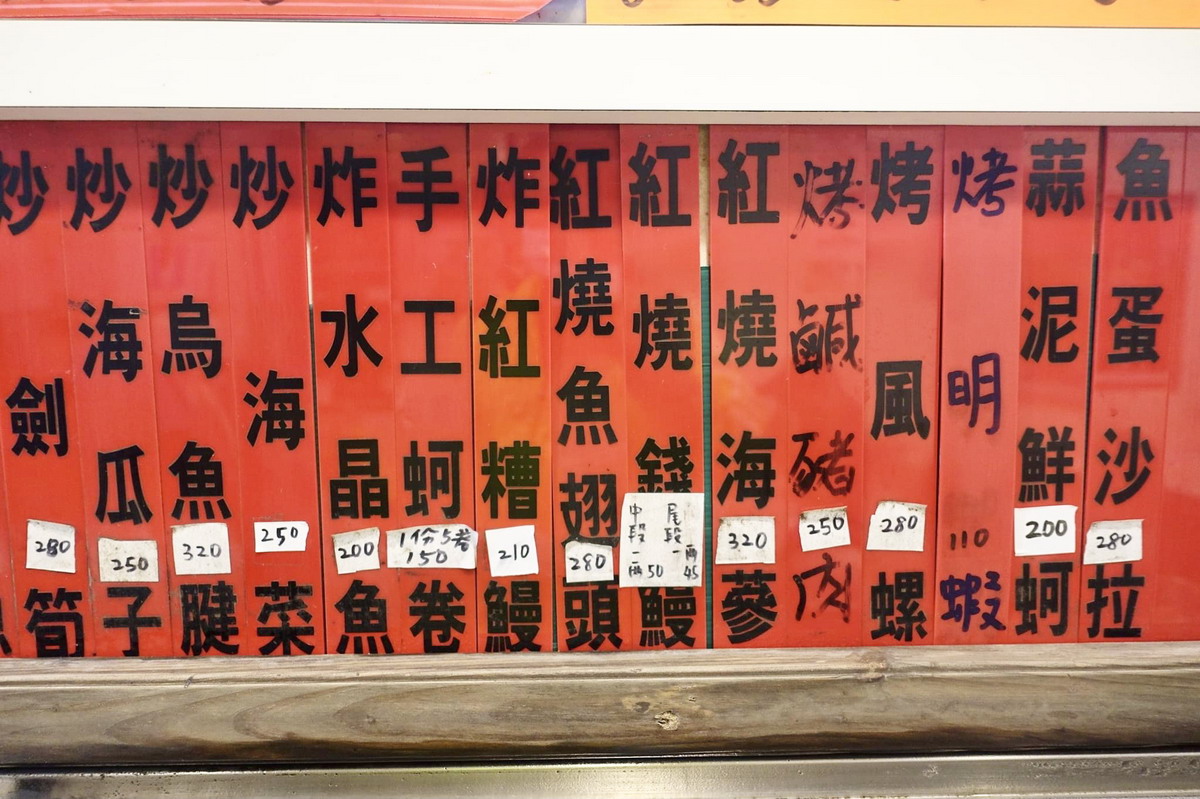 炒劍筍 280
炒海瓜子 250
炒烏魚腱 320
炒海菜 250
炸水晶魚 200
手工蚵卷 1份5卷 150
炸紅糟鰻 210
紅燒魚翅頭 280
紅燒錢鰻 尾段一兩45 中段一兩50
紅燒海蔘 320
烤鹹豬肉 250
烤風螺 280
烤明蝦 110
蒜泥鮮蚵 200
魚蛋沙拉 280